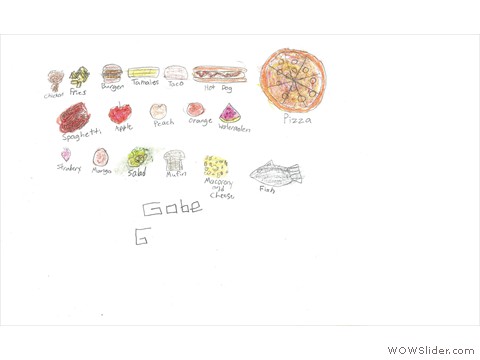 Chicken Fries Burger Tamales Taco Hot Dog
Pizza
Spaghetti Apple Peach Orange Watermelon
Mango Salad Mufin Macarony and Cheese Fish
Gabe
G
WOWSlider.com